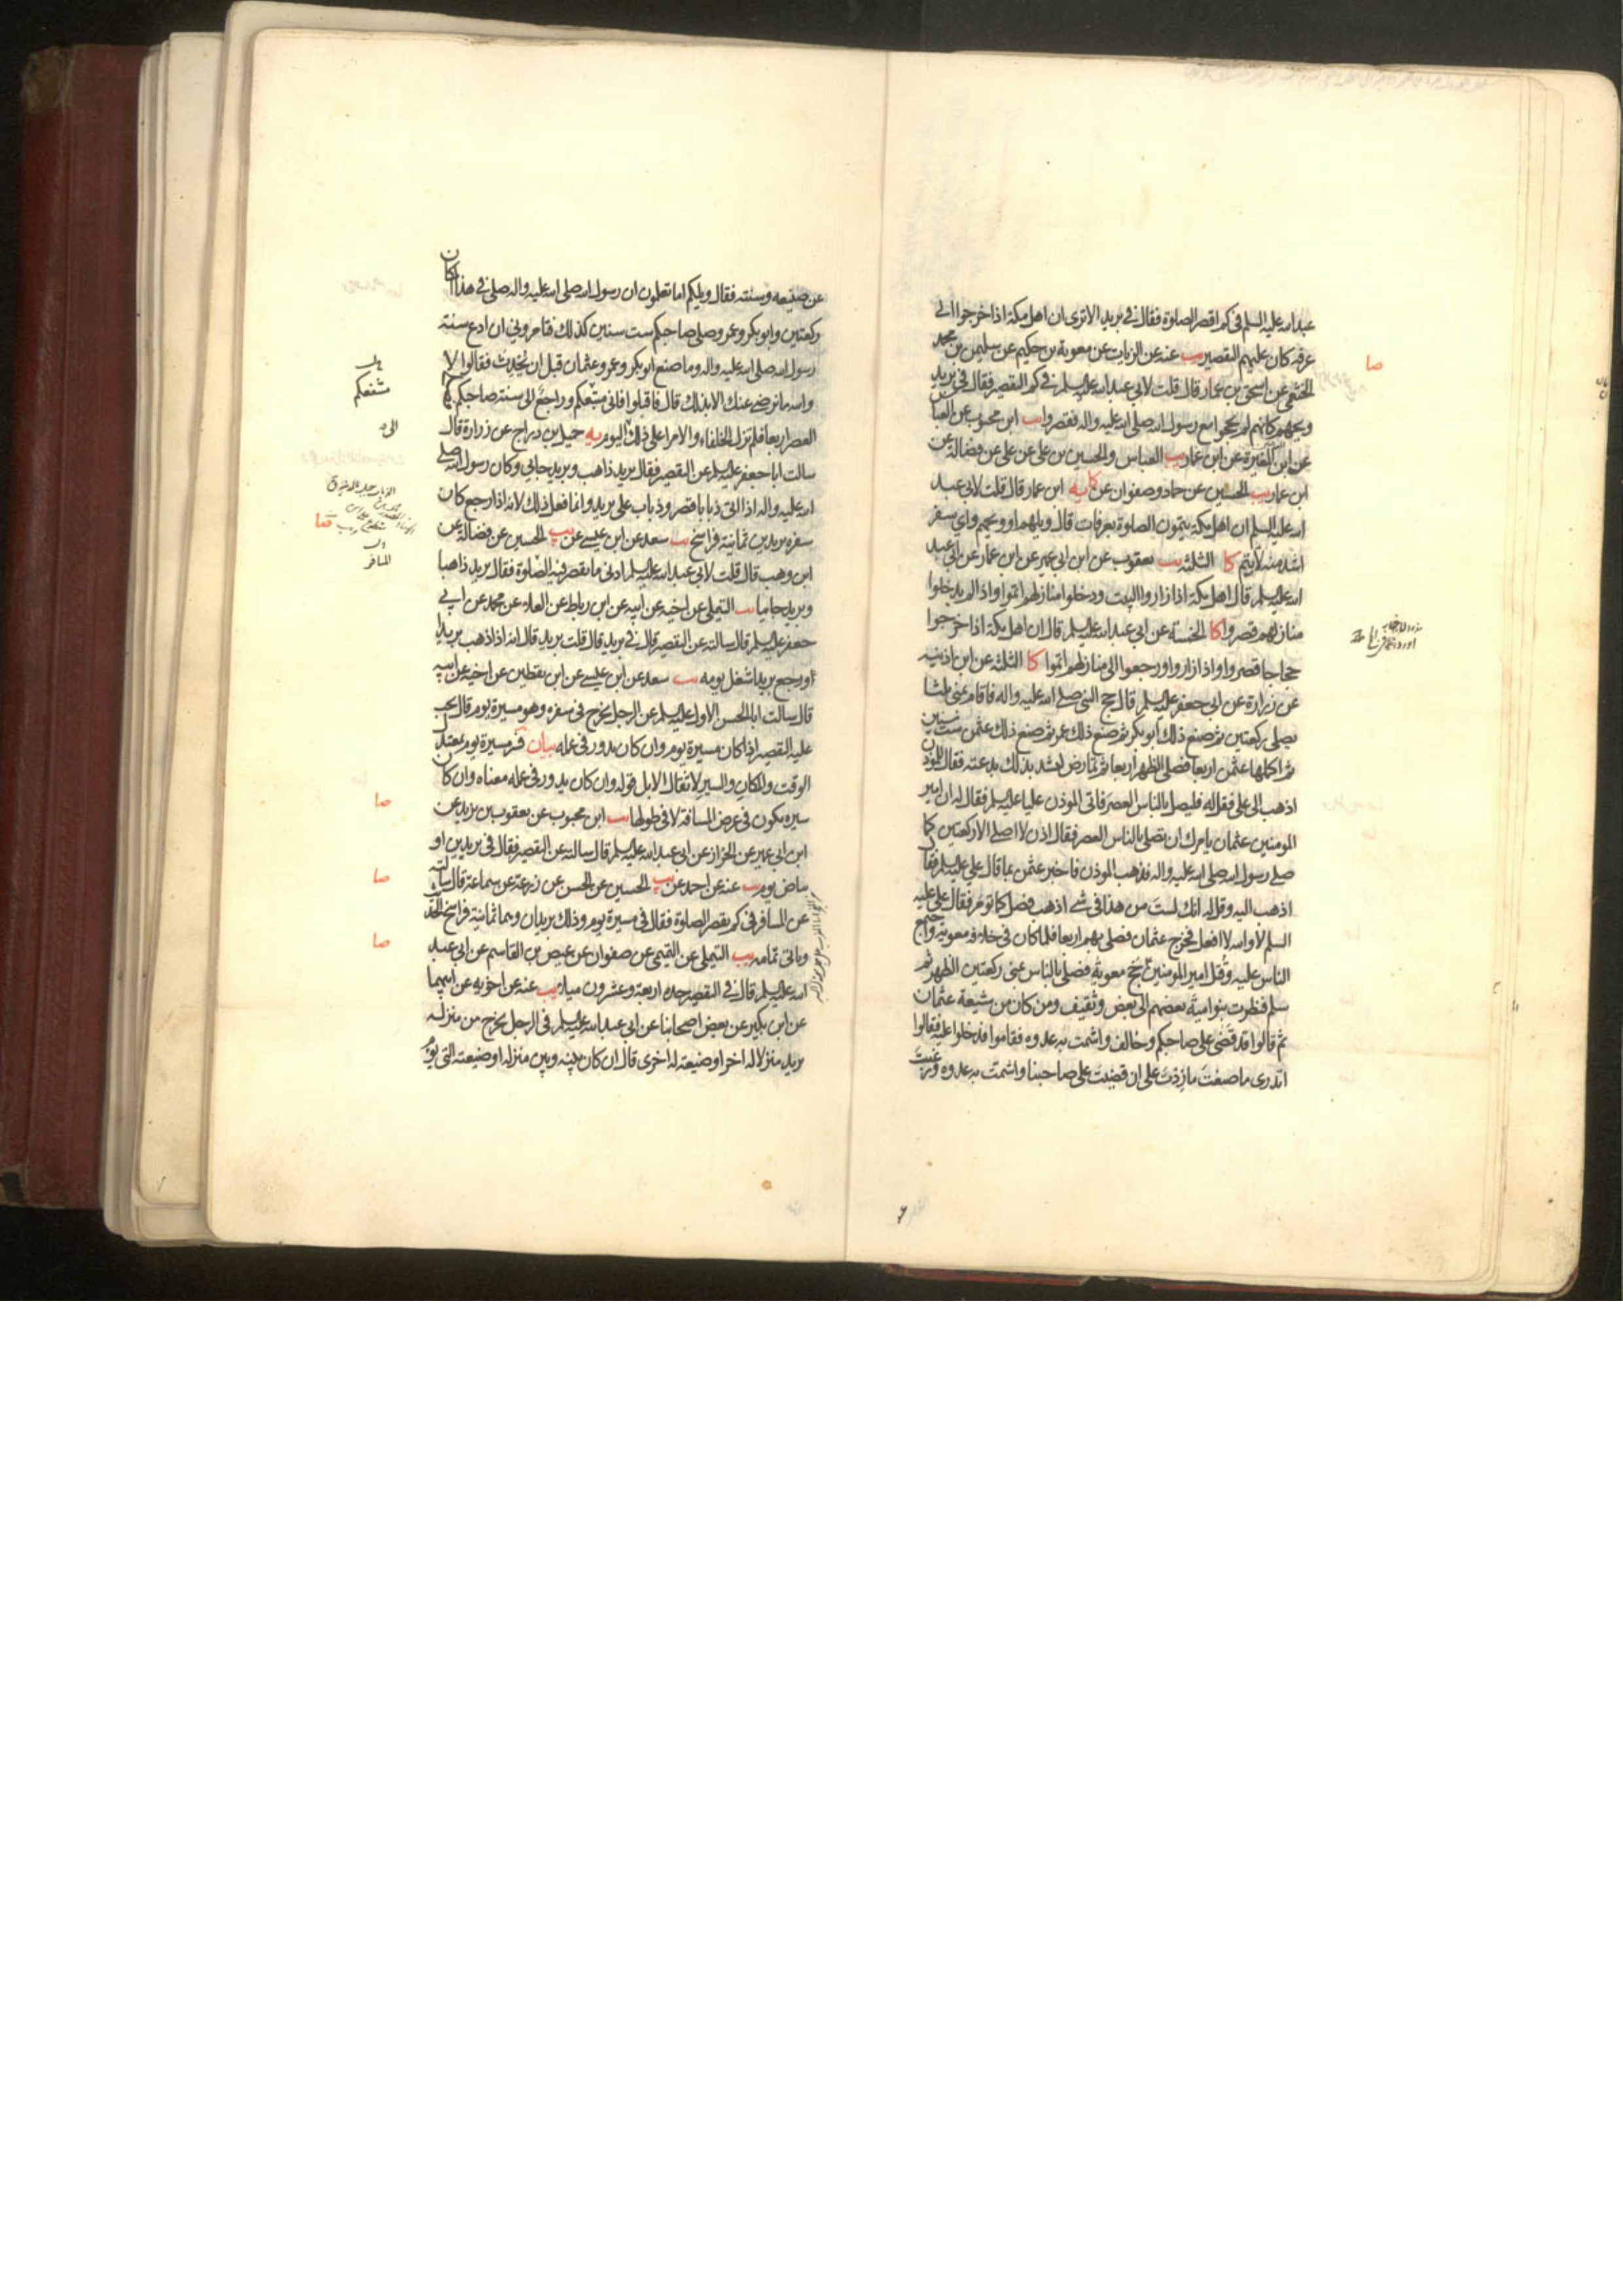 عبد الله عليه السلم في كم اقصر الصلوة فقال في بريد الا ترى ان اهل مكة اذا خرجوا الى
عرفه كان عليهم التقصير يب عنه عن الزيات عن معوية بن حكيم عن سليمن بن محمد
الخثعمي عن اسحق بن عمار قال قلت لابي عبد الله عليه السلم في كم التقصير فقال في بريد
ويحهم كانهم لم يحجوا مع رسول الله صلى الله عليه واله فقصروا يب ابن محبوب عن العباس
عن ابن المغيرة عن ابن عمار يب العباس والحسين بن علي عن علي عن فضالة عن
ابن عمار يب الحسين عن حماد وصفوان عن كا يه ابن عمار قال قلت لابي عبد
الله عليه السلم ان اهل مكة يتمون الصلوة بعرفات قال ويلهم او ويحهم واي سفر
اشد منه لا يتم كا الثلثه يب يعقوب عن ابن ابي عمير عن ابن عمار عن ابي عبد
الله عليه السلم قال اهل مكة اذا زاروا البيت ودخلوا منازلهم اتموا واذا لم يدخلوا
منازلهم قصروا كا الخمسة عن ابي عبد الله عليه السلم قال ان اهل مكة اذا خرجوا
حجاجا قصروا واذا زاروا ورجعوا الى منازلهم اتموا كا الثلثه عن ابن اذينه
عن زرارة عن ابي جعفر عليه السلم قال حج النبي صلى الله عليه واله فاقام بمنى ثلثا
يصلي ركعتين ثم صنع ذلك ابو بكر ثم صنع ذلك عمر ثم صنع ذلك عثمن ست سنين
ثم اكملها عثمن اربعا فصلى الظهر اربعا ثم تمارض ليشد بذلك بدعته فقال للموذن
اذهب الى علي فقل له فليصل بالناس العصر فاتى الموذن عليا عليه السلم فقال له ان امير
المومنين عثمان يامرك ان تصلي بالناس العصر فقال اذن لا اصلي الا ركعتين كما
صلى رسول الله صلى الله عليه واله فذهب الموذن فاخبر عثمن بما قال علي عليه السلم فقال
اذهب اليه وقل له انك لست من هذا في شيء اذهب فصل كما تومر فقال علي عليه
السلم لا والله لا افعل فخرج عثمان فصلى بهم اربعا فلما كان في خلافة معوية واجتمع
الناس عليه وقتل امير المومنين ع حج معوية فصلى بالناس بمنى ركعتين الظهر ثم
سلم فنظرت بنو امية بعضهم الى بعض وثقيف ومن كان من شيعة عثمان
ثم قالوا قد قضى على صاحبكم وخالف واشمت به عدوه فقاموا فدخلوا عليه فقالوا
اتدري ما صنعت ما زدت على ان قضيت على صاحبنا واشمت به عدوه ورغبت
صا
عن صنيعه وسنته فقال ويلكم اما تعلمون ان رسول الله صلى الله عليه واله صلى في هذا المكان
ركعتين وابو بكر وعمر وصلى صاحبكم ست سنين كذلك فتامروني ان ادع سنة
رسول الله صلى الله عليه واله وما صنع ابو بكر وعمر وعثمان قبل ان يحدث فقالوا لا
والله ما نرضى عنك الا بذلك قال فاقبلوا فاني متبعكم وراجع الى سنة صاحبكم
العصر اربعا فلم تزل الخلفاء والامراء على ذلك اليوم يه جميل بن دراج عن زرارة قال
سالت ابا جعفر عليه السلم عن التقصير فقال بريد ذاهب وبريد جائي وكان رسول الله صلى
الله عليه واله اذا اتى ذبابا قصر وذباب على بريد وانما فعل ذلك لانه اذا رجع كان
سفره بريدين ثمانية فراسخ يب سعد عن ابن عيسى عن يب الحسين عن فضالة عن
ابن وهب قال قلت لابي عبد الله عليه السلم ادنى ما يقصر فيه الصلوة فقال بريد ذاهبا
وبريد جائيا يب التيملي عن اخيه عن ابيه عن ابن رباط عن العلاء عن محمد عن ابي
جعفر عليه السلم قال سالته عن التقصير قال في بريد قال قلت بريد قال انه اذا ذهب بريدا
ورجع بريدا شغل يومه يب سعد عن ابن عيسى عن ابن يقطين عن اخيه عن ابيه
قال سالت ابا الحسن الاول عليه السلم عن الرجل يخرج في سفره وهو مسيرة يوم قال يجب
عليه التقصير اذا كان مسيرة يوم وان كان يدور في عمله بيان فسر مسيرة يوم بمعتدل
الوقت والمكان والسير لاثقال الابل قوله وان كان يدور في عمله معناه وان كان
سيره يكون في عرض المسافة لا في طولها يب ابن محبوب عن يعقوب بن يزيد عن
ابن ابي عمير عن الخزاز عن ابي عبد الله عليه السلم قال سالته عن التقصير فقال في بريدين او
بياض يوم يب عنه عن احمد عن يب الحسين عن الحسن عن زرعة عن سماعة قال سالته
عن المسافر في كم يقصر الصلوة فقال في مسيرة يوم وذلك بريدان وهما ثمانية فراسخ الحديث
وياتي تمامه يب التيملي عن القيمي عن صفوان عن عيص بن القاسم عن ابي عبد
الله عليه السلم قال في التقصير حده اربعة وعشرون ميلا يب عنه عن اخويه عن ابيهما
عن ابن بكير عن بعض اصحابنا عن ابي عبد الله عليه السلم في الرجل يخرج من منزله
يريد منزلا له اخر او ضيعة له اخرى قال ان كان بينه وبين منزله او ضيعته التي يؤم
مشفعكم
المسافر
صا
صا
صا